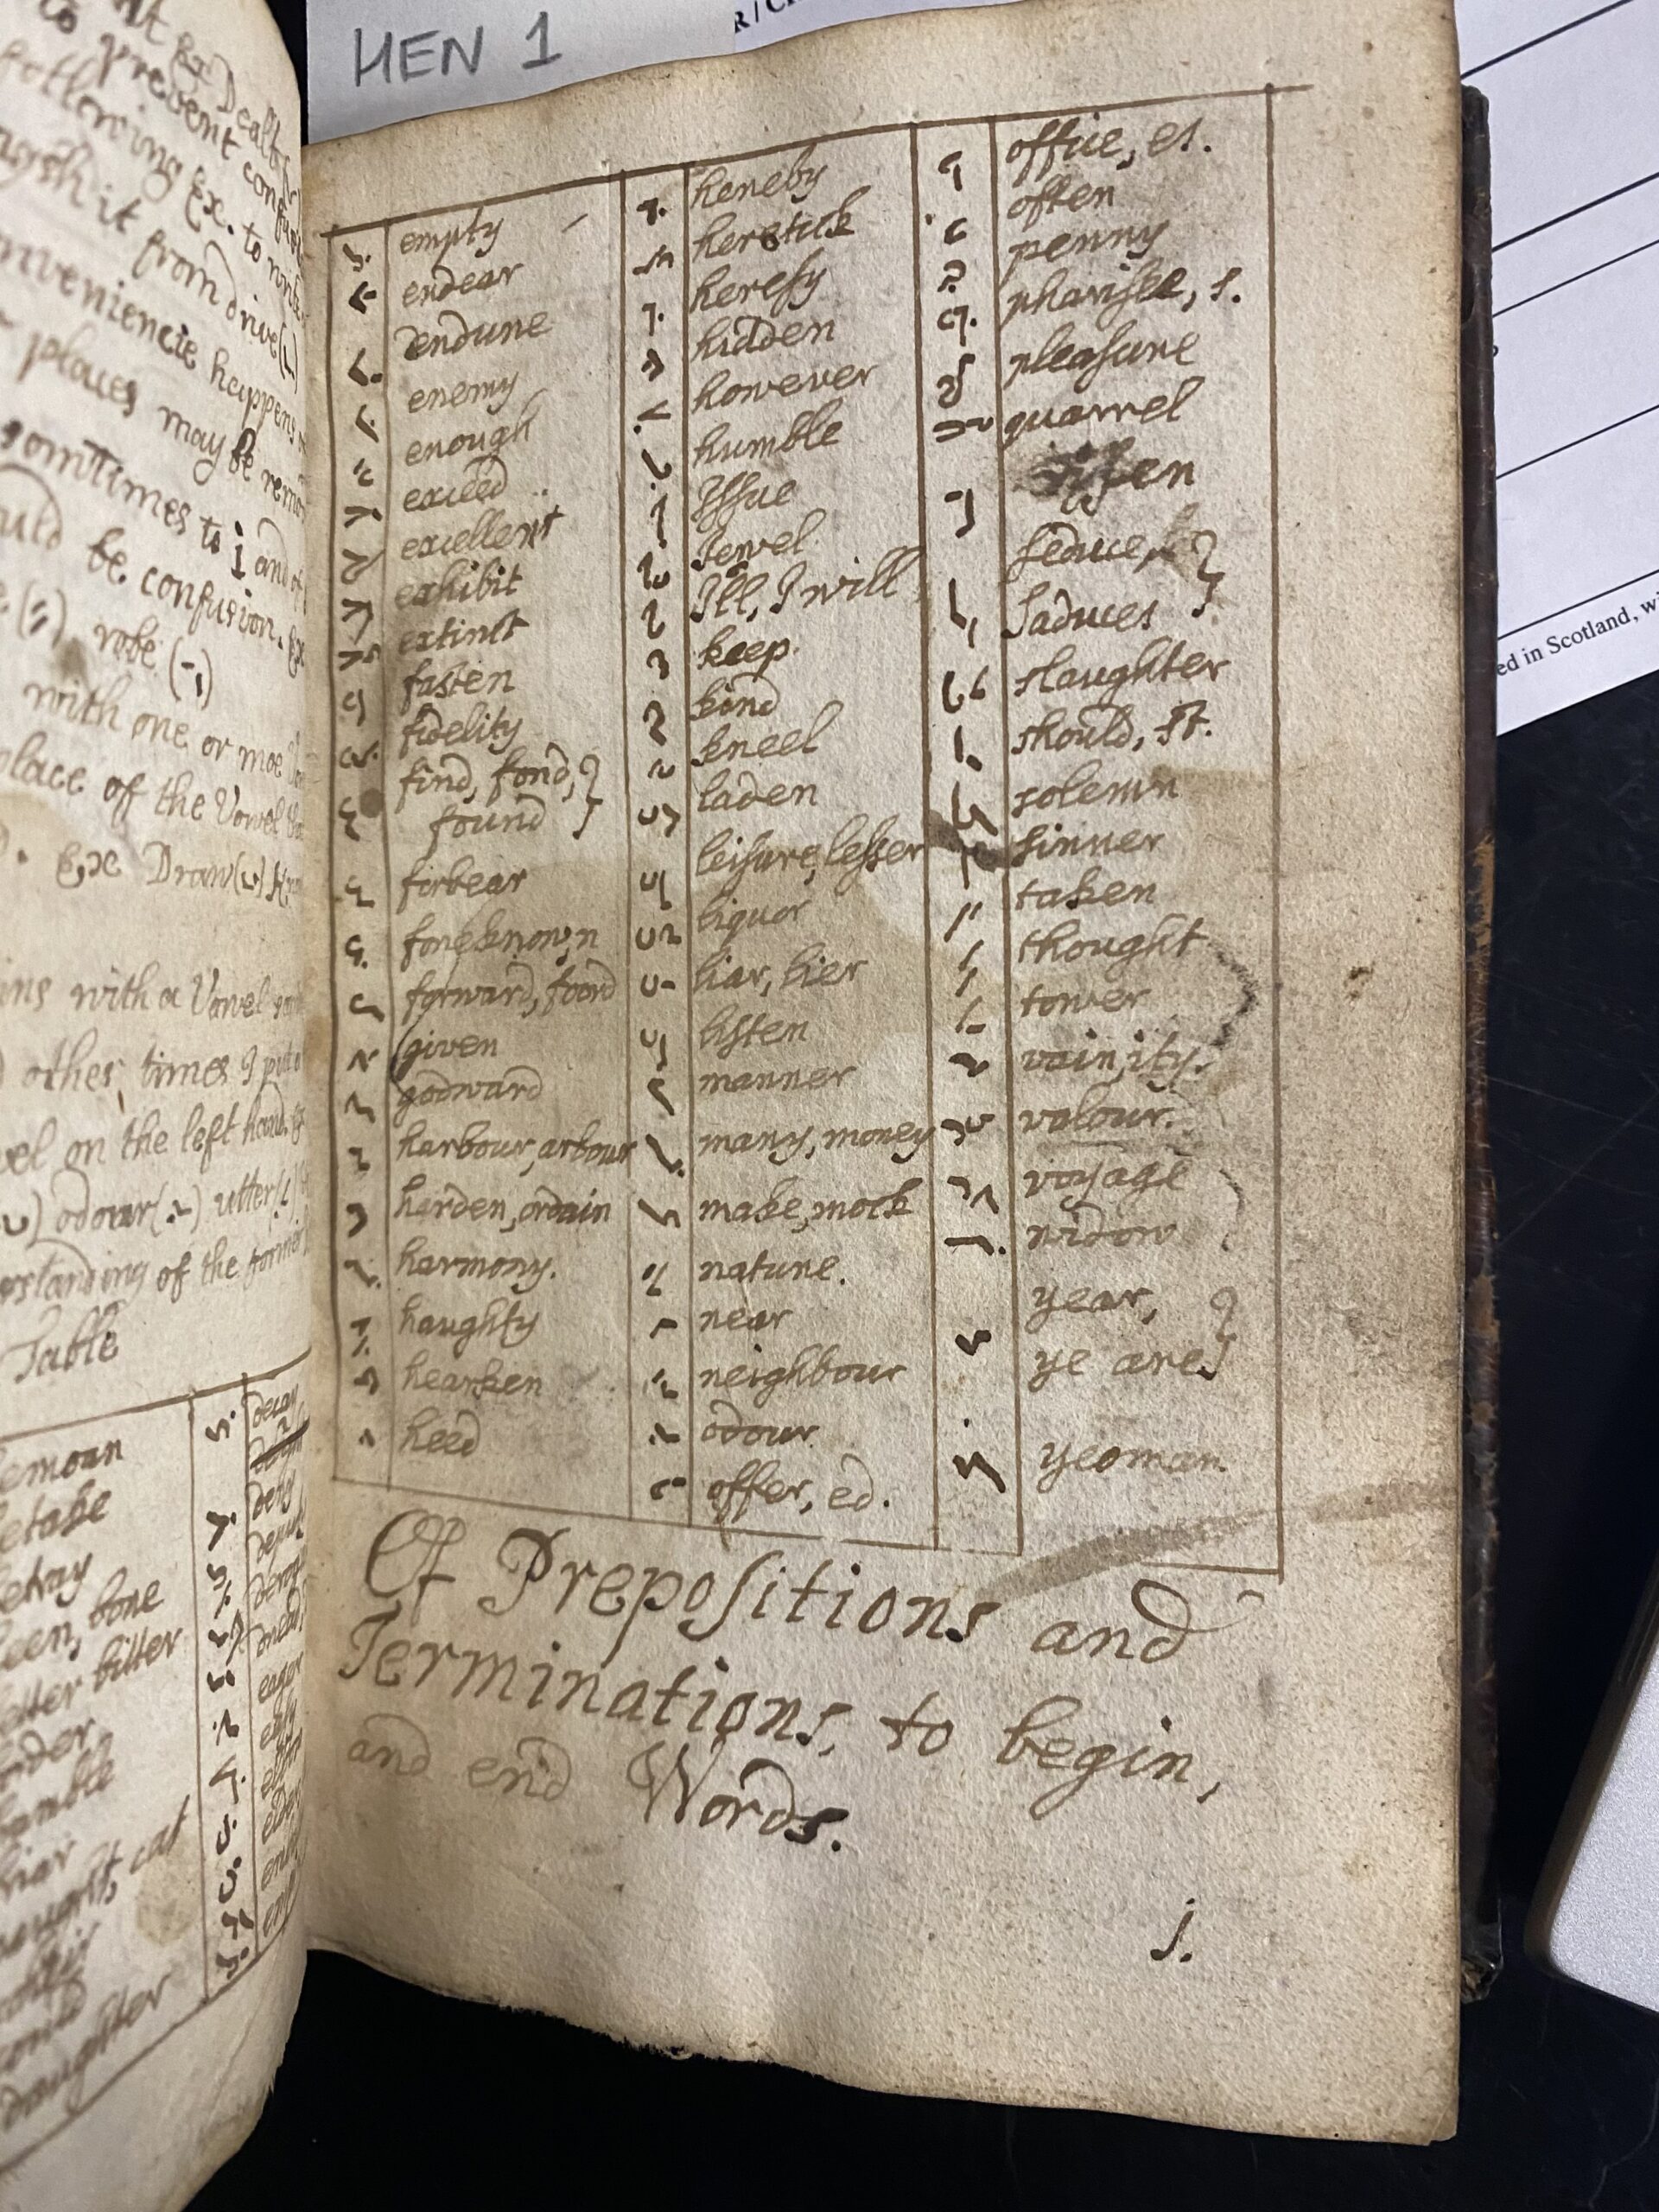 HEN 1
ed in Scotland, wi
prevent
following Ex. to
it from drive
happens
places may be
somtimes to i and
be confusion.
robe
with one or moe
place off the Vowel
Exe Draw
with a Vowel
other times I put
on the left hand
odour utter
of the former
Table
betake
been, bone
better bitter
daughter
empty
endear
endure
enemy
enough
exceed
excellent
exhibit
extinct
fasten
fidelity
find, fond,
found
forbear
foreknown
forward, foord
given
godward
harbour, arbour
harden, ordain
harmony.
haughty
hearken
heed
hereby
heretick
heresy
hidden
however
humble
Issue
Jewel
Ill, I will
keep.
kind
kneel
laden
leisure, lesser
liquor
liar, lier
listen
manner
many, money
make, mock
nature.
near
neighbour
odour
offer, ed.
office, es.
often
penny
pharisee, s.
pleasure
quarrel
seduce,
Saduces
slaughter
should, st.
solemn
sinner
taken
thought
tower
vain, ity.
valour.
voyage
widow
year,
ye are
yeoman
Of Prepositions and
Terminations, to begin,
and end Words.
1.